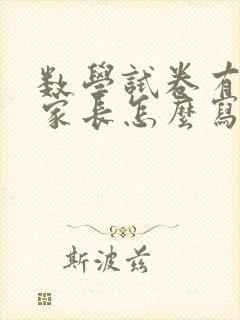 数學試卷有
家長怎麼寫
斯波兹